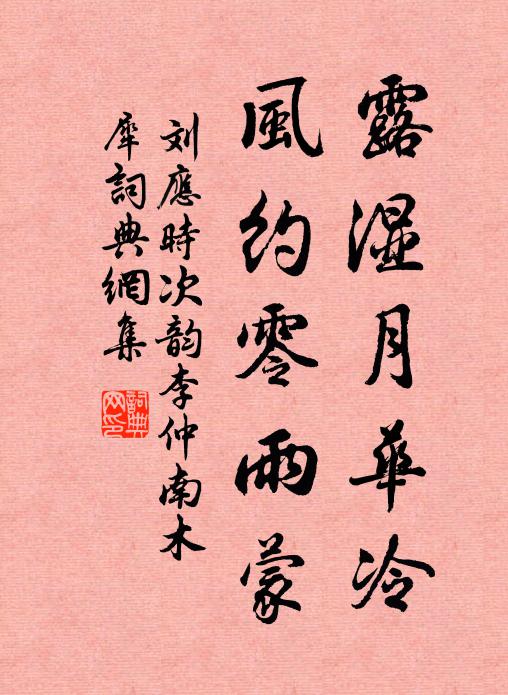 露湿月華冷
風約零雨蒙
刘應時次韵李仲南木
犀詞典網集
詞典网印